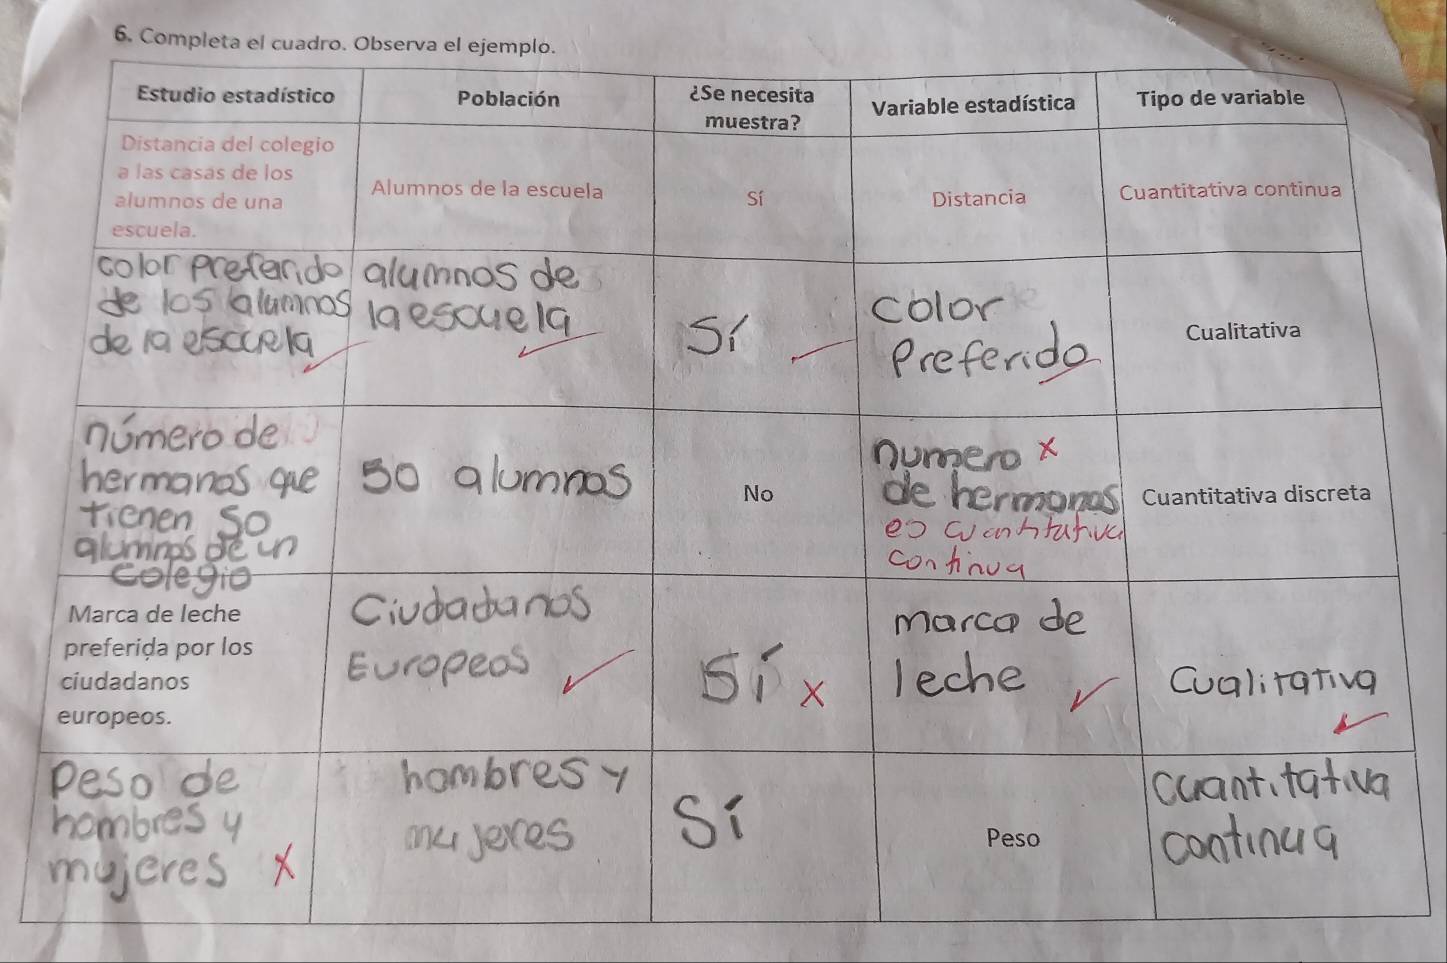 6. Completa el cuadro. Observa el ejemplo.
Estudio estadístico
Población
¿Se necesita
muestra?
Variable estadística
Tipo de variable
Distancia del colegio
a las casas de los
alumnos de una
escuela.
Alumnos de la escuela
Sí
Distancia
Cuantitativa continua
color preferido
de los alumnos
de la escuela
alumnos de
la escuela
Sí
color
Preferido
Cualitativa
número de
hermanos que
tienen 50
alumnos de un
colegio
50 alumnos
No
numero x
de hermanos
es cuantitativa
continua
Cuantitativa discreta
Marca de leche
preferida por los
ciudadanos
europeos.
Ciudadanos
Europeos
Sí x
marca de
leche
Cualitativa
Peso de
hombres y
mujeres x
hombres y
mujeres
Sí
Peso
cuantitativa
continua